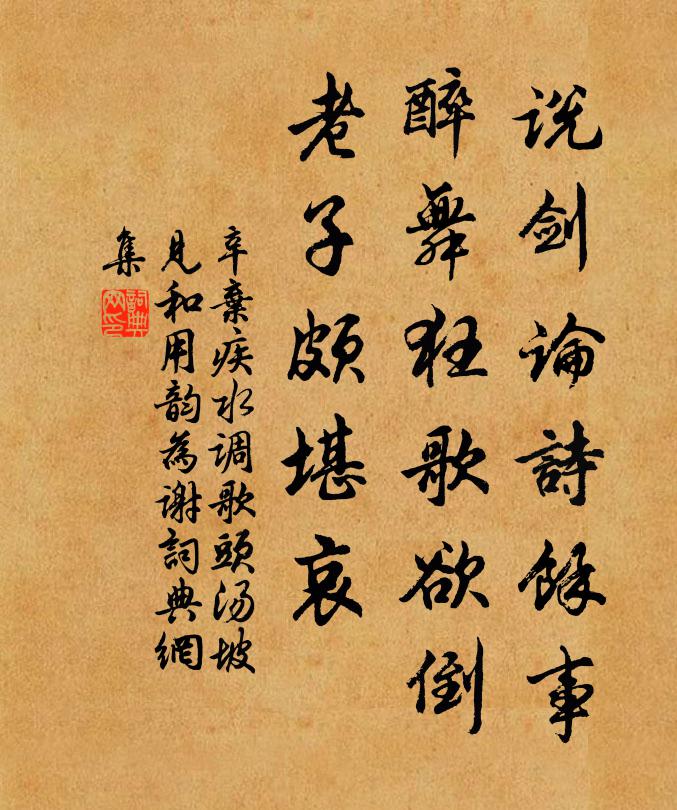 说剑论詩餘事
醉舞狂歌欲倒
老子颇堪哀
辛棄疾水调歌頭汤坡
見和用韵為谢詞典網
集
詞典
网印